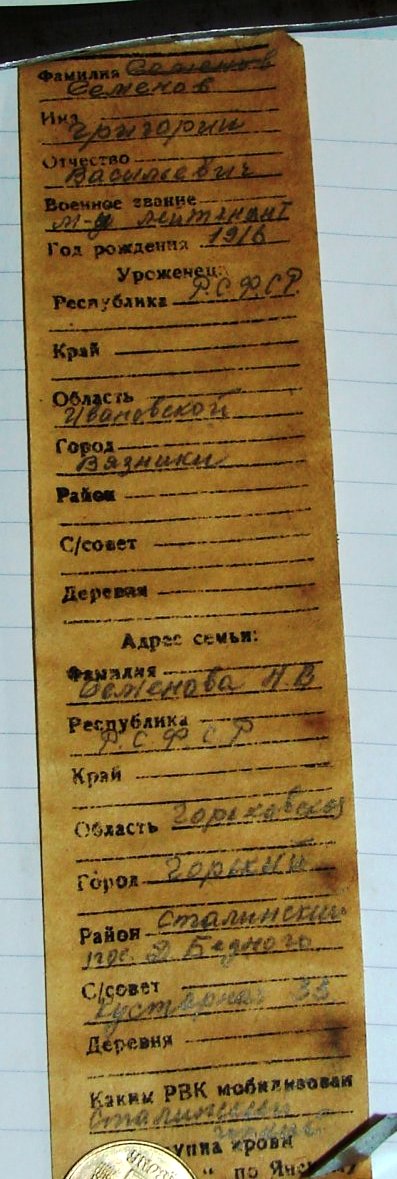 Фамилия Семенов
Семенов
Имя
Григорий
Отчество
Васильевич
Военное звание
м-р лейтенант
Год рождения 1916
Уроженец:
Республика Р.С.Ф.С.Р.
Край
Область
Ивановской
Город
Вязники
Район
С/совет
Деревня
Адрес семьи:
Фамилия
Семенова Н В
Республика
Р С Ф С Р
Край
Область Горьковская
Город Горький
Район Сталинский
Д Бедного
С/совет
Кустарная 33
Деревня
Каким РВК мобилизован
Сталинский
крови
" по Янскому